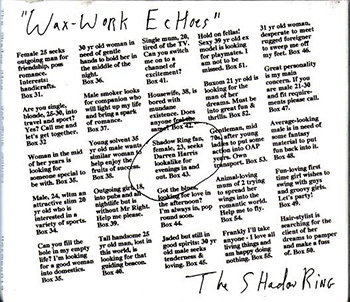 "Wax-Work Echoes"
Female 25 seeks
outgoing man for
friendship, poss
romance.
Interests:
handicrafts.
Box 31.
Are you single,
blonde, 25-30, into
travel and sport?
Yes? Call me and
let's get together.
Box 32
Woman in the mid
of her years is
looking for
someone special to
be with. Box 33.
Male, 24, with an
attractive slim 20
yr old who is
interested in a
variety of sports.
Box 34.
Can you fill the
hole in my empty
life? I'm looking
for a good woman
into domestics.
Box 35.
30 yr old woman in
need of gentle
hands to hold her in
the middle of the
night.
Box 36.
Male smoker looks
for companion who
will light up my life
and bring a spark
of romance.
Box 37.
Young solvent 35
yr old male wants
similar woman to
help enjoy the
fruits of success.
Box 38.
Outgoing girl, 18,
into pubs and hot
nightlife but is
without Mr Right.
Help me please.
Box 39.
Tall handsome 25
yr old man, lost in
this world, is
looking for that
guiding beacon.
Box 40.
Single mum, 20,
tired of the TV.
Can you switch
me on to a
channel of
excitement?
Box 41.
Housewife, 38, is
bored with
mundane
existence. Does
anyone feel the
same? Box 42.
Shadow Ring fan,
female, 23, seeks
Darren Harris
lookalike for
evenings in and
out. Box 43.
Got the blues,
looking for love in
the afternoon?
I'm always in, pop
round soon.
Box 44.
Jaded but still in
good spirits: 30 yr
old male seeks
tenderness &
loving. Box 45.
Hold on fellas!
Sexy 39 yr old ex
model is looking
for playmates. I
am not to be
missed. Box 51.
Buxom 21 yr old is
looking for the
man of her
dreams. Must be
into great fun &
thrills. Box 52.
Gentleman, mid
70s, after young
ladies to put some
action into OAP
years. Own
transport. Box 53.
Animal-loving
mum of 2 trying
to spread her
wings into the
romantic world.
Help me to fly.
Box 54.
Frankly I'll take
anyone - I love all
living things and
am happy doing
nothing. Box 55.
31 yr old woman,
desperate to meet
rugged foreigner
to sweep me off
my feet. Box 46.
Great personality
is my main
concern. If you
are male 21-30
and fit requirements
please call.
Box 47.
Average-looking
male is in need of
some fantasy
material to put
fun back into it.
Box 48.
Fun-loving first
time girl wishes to
swing with guys
and groovy girls.
Let's party!
Box 49.
Hair-stylist is
searching for the
client of her
dreams to pamper
and make a fuss
of. Box 50.
The Shadow Ring